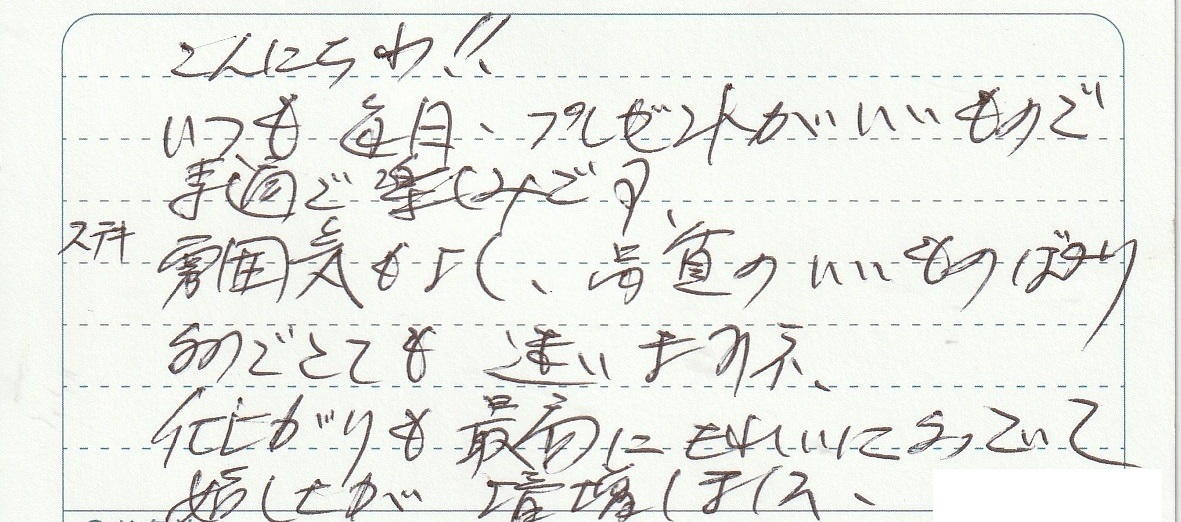 こんにちわ!!
いつも毎月、プレゼントがいいもので
毎週で楽しみです。
ステキ
雰囲気もよく、品質のいいものばかり
なのでとても迷いますネ、
仕上がりも最高にきれいになっていて
嬉しさが倍増しました、